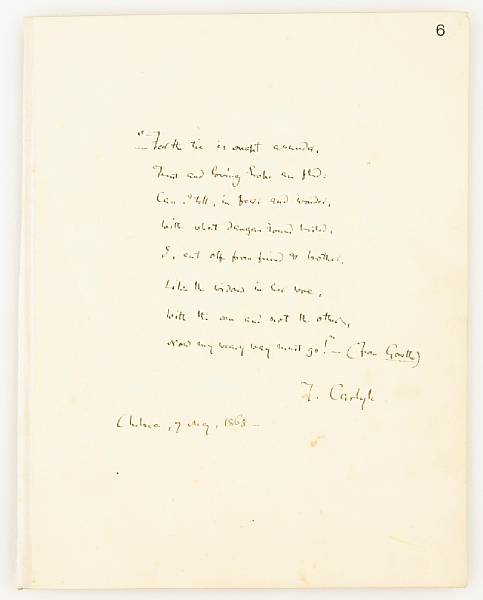 6
"—For the tie is snapt asunder,
Trust and loving hope are fled;
Can I tell, in fear and wonder,
With what dangers round bested,
I, cut off from friend & brother,
Like the widow in her woe,
With the one and not the other,
Now my weary way must go!"— (from Goethe)
T. Carlyle
Chelsea, 7 May, 1865 —